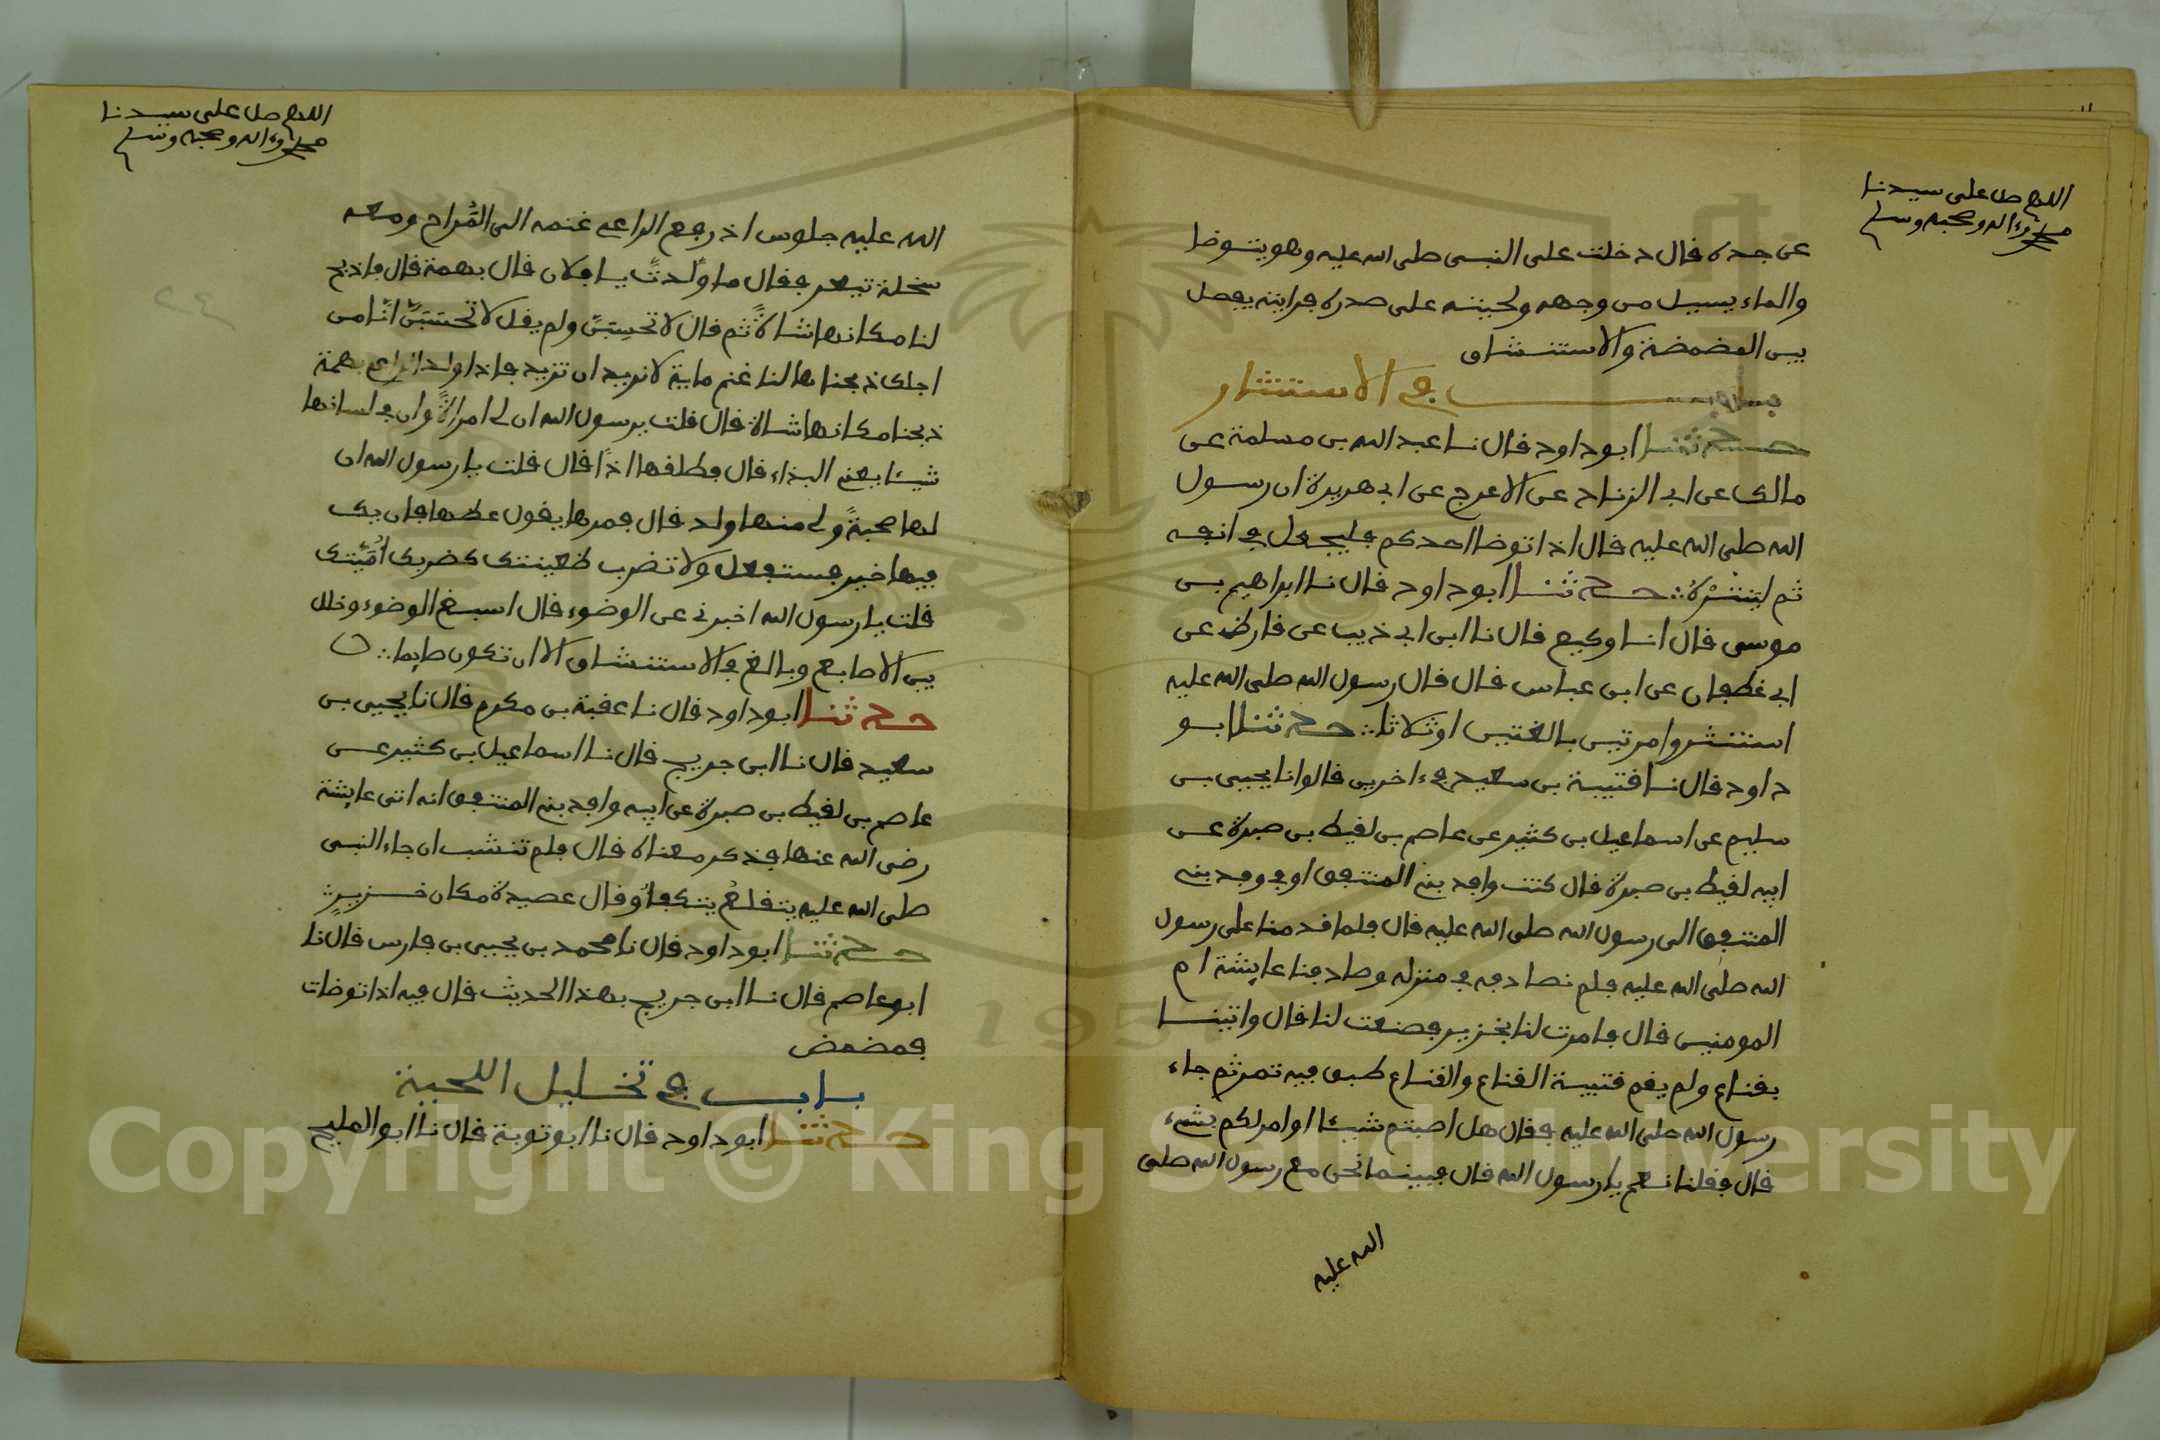 اللهم صل على سيدنا
محمد وءاله وصحبه وسلم
عن جده قال دخلت على النبي صلى الله عليه وهو يتوضا
والماء يسيل من وجهه ولحيته على صدره فرايته يفصل
بين المضمضة والاستنشاق
باب في الاستنثار
حدثنا ابو داود قال نا عبد الله بن مسلمة عن
مالك عن ابي الزناد عن الاعرج عن ابي هريرة ان رسول
الله صلى الله عليه قال اذا توضا احدكم فليجعل في انفه
ثم لينثره حدثنا ابو داود قال نا ابراهيم بن
موسى قال انا وكيع قال نا ابن ابي ذيب عن قارظ عن
ابي غطفان عن ابن عباس قال قال رسول الله صلى الله عليه
استنثروا مرتين بالغتين او ثلاثا حدثنا ابو
داود قال نا قتيبة بن سعيد في ءاخرين قالوا نا يحيى بن
سليم عن اسماعيل بن كثير عن عاصم بن لقيط بن صبرة عن
ابيه لقيط بن صبرة قال كنت وافد بني المنتفق او في وفد بني
المنتفق الى رسول الله صلى الله عليه قال فلما قدمنا على رسول
الله صلى الله عليه فلم نصادفه في منزله وصادفنا عايشة ام
المومنين قال فامرت لنا بخزير فصنعت لنا قال واتينا
بقناع ولم يقم قتيبة القناع والقناع طبق فيه تمر ثم جاء
رسول الله صلى الله عليه فقال هل اصبتم شيئا او امر لكم بشيء
قال فقلنا نعم يا رسول الله قال فبينما نحن مع رسول الله صلى
الله عليه
اللهم صل على سيدنا
محمد وءاله وصحبه وسلم
الله عليه جلوس اذ رجع الراعي غنمه الى المُراح ومعه
سخلة تيعر فقال ما ولدت يا فلان قال بهمة قال فاذبح
لنا مكانها شاة ثم قال لا تحسِبَنَّ ولم يقل لا تحسَبَنَّ انا من
اجلك ذبحناها لنا غنم ماية لا نريد ان تزيد فاذا ولد الراعي بهمة
ذبحنا مكانها شاة قال قلت يرسول الله ان لي امراة وان في لسانها
شيئا يعني البذاء قال فطلقها اذا قال قلت يا رسول الله ان
لها صحبةً ولي منها ولد قال فمرها يقول عظها فان يك
فيها خير فستفعل ولا تضرب ظعينتك كضربك اُمَيَّتك
قلت يا رسول الله اخبرني عن الوضوء قال اسبغ الوضوء وخلل
بين الاصابع وبالغ في الاستنشاق الا ان تكون صايما
حدثنا ابو داود قال نا عقبة بن مكرم قال نا يحيى بن
سعيد قال نا ابن جريج قال نا اسماعيل بن كثير عن
عاصم بن لقيط بن صبرة عن ابيه وافد بني المنتفق انه اتى عايشة
رضي الله عنها فذكر معناه قال فلم تنشب ان جاء النبي
صلى الله عليه يتقلع يتكفا وقال عصيدة مكان خزير
حدثنا ابو داود قال نا محمد بن يحيى بن فارس قال نا
ابو عاصم قال نا ابن جريج بهذا الحديث قال فيه اذا توضات
فمضمض
باب في تخليل اللحية
حدثنا ابو داود قال نا ابو توبة قال نا ابو المليح
Copyright © King Saud University
1957